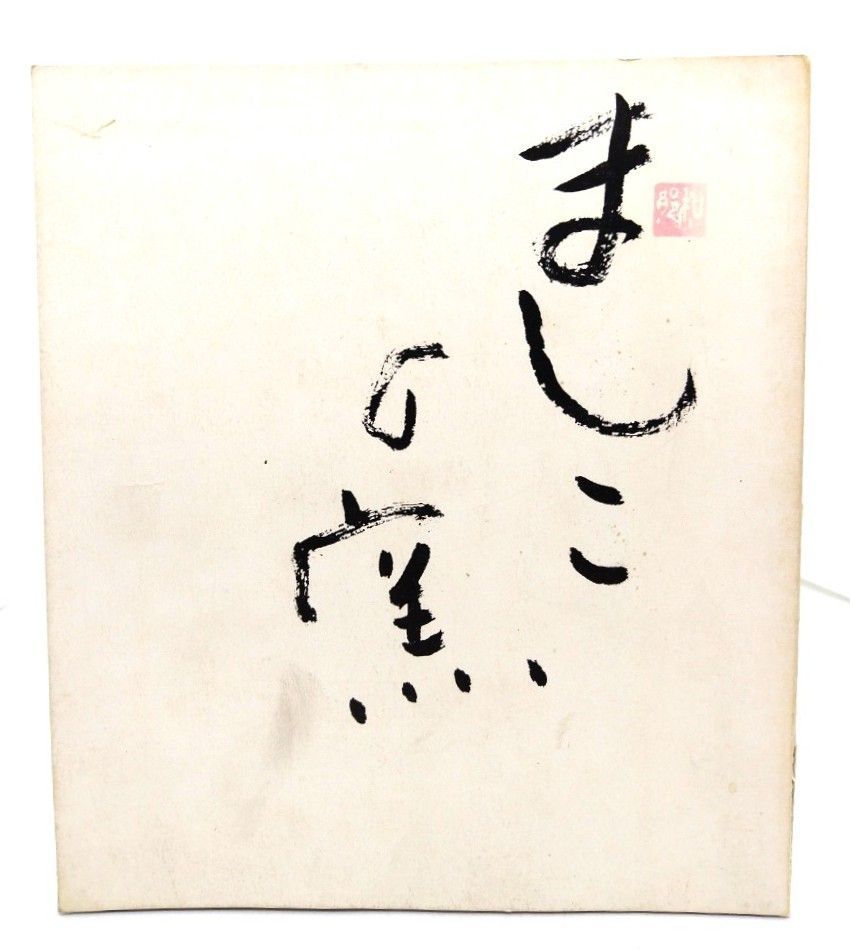 ましこ
の窯